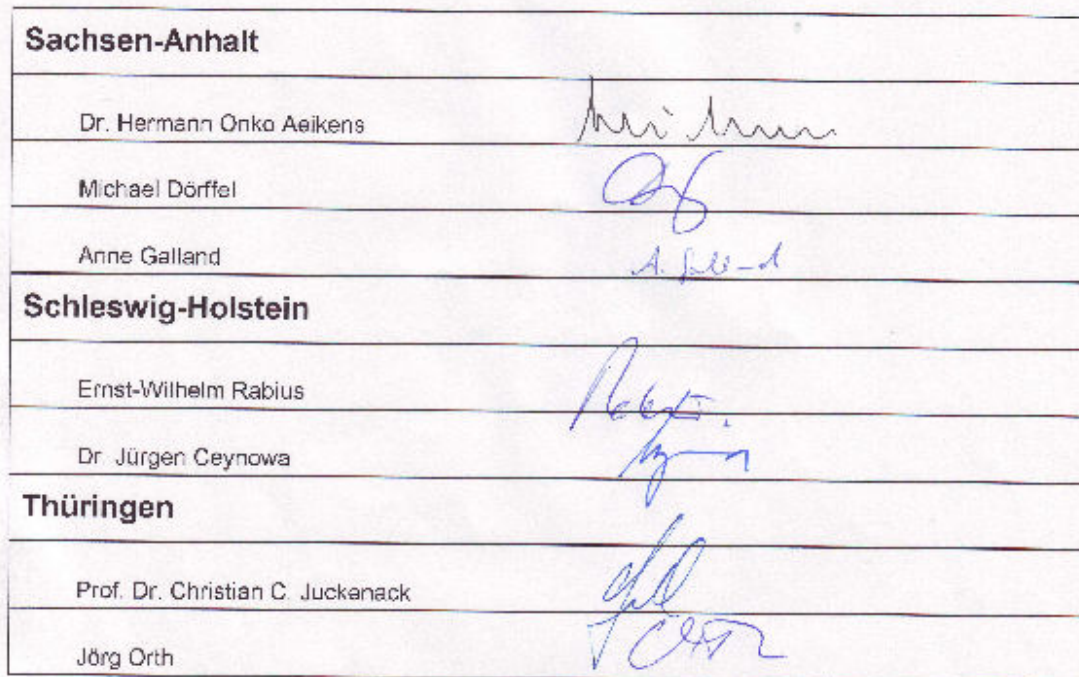 Sachsen-Anhalt
Dr. Hermann Onko Aeikens
Michael Dörffel
Anne Galland
A. Galland
Schleswig-Holstein
Ernst-Wilhelm Rabius
Dr. Jürgen Ceynowa
Thüringen
Prof. Dr. Christian C. Juckenack
Jörg Orth